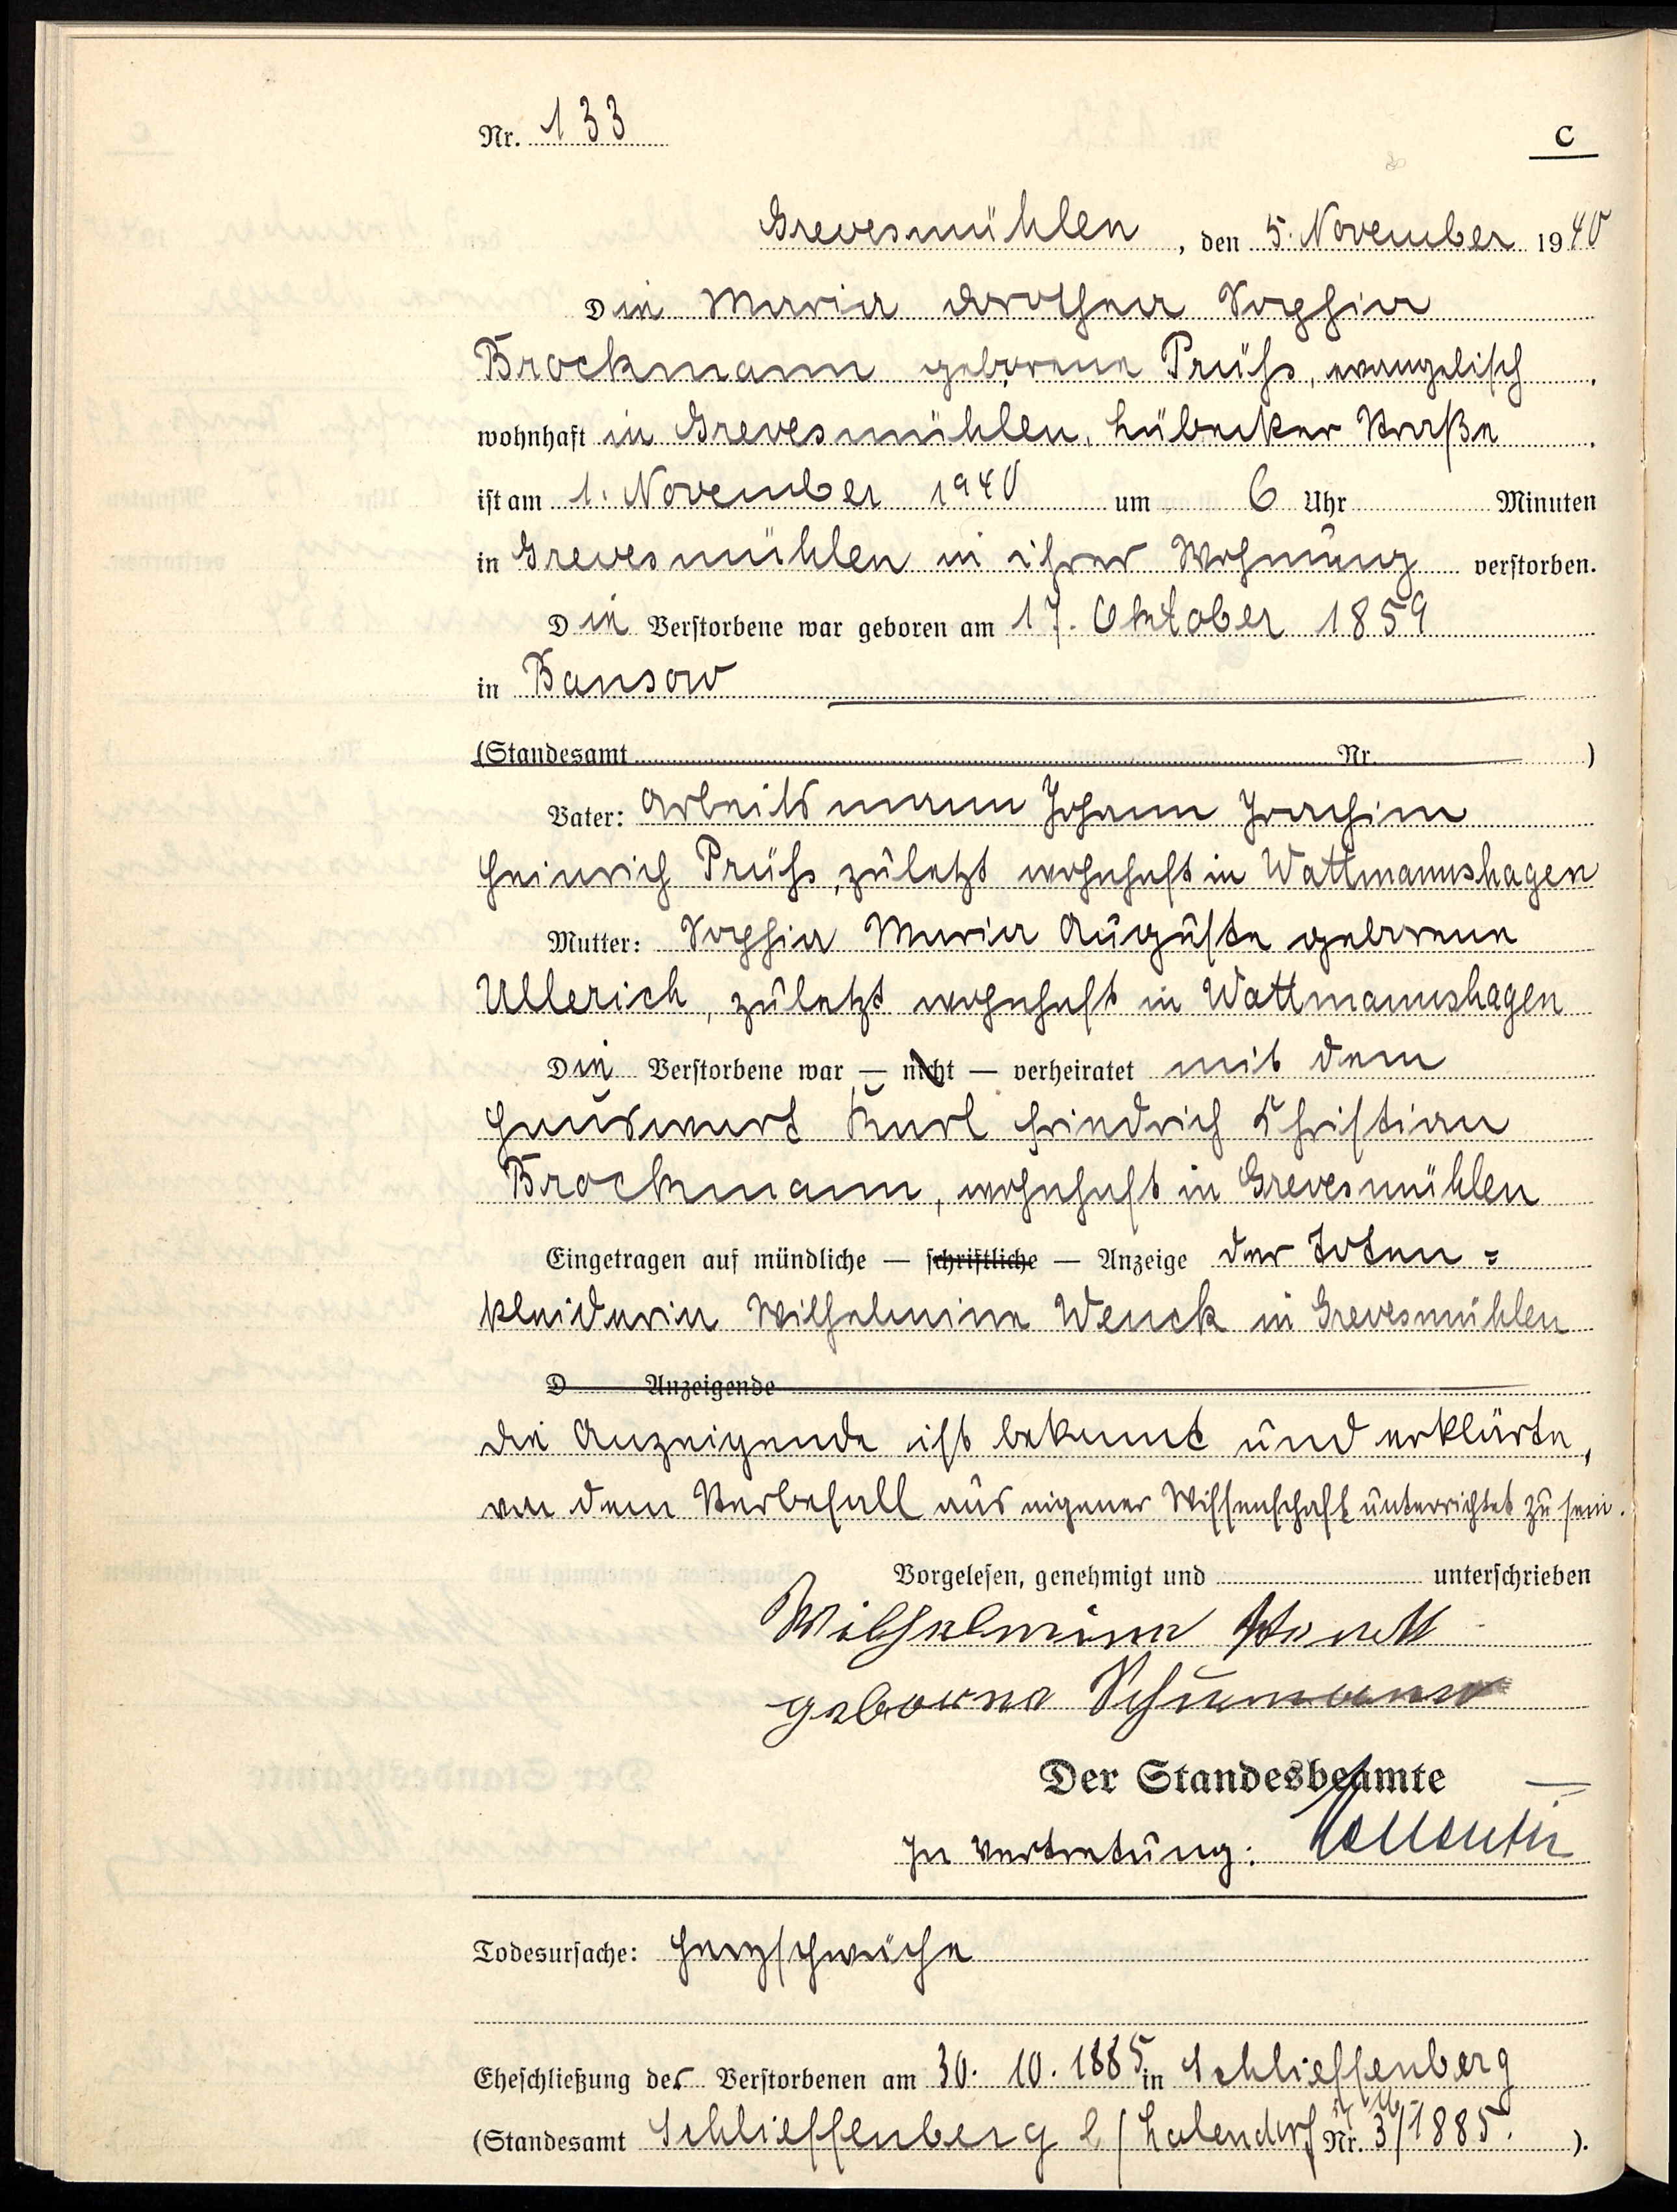 Nr. 133
C
Grevesmühlen, den 5. November 1940
Die Maria Dorothea Sophia
Brockmann geborene Prühs, evangelisch
wohnhaft in Grevesmühlen, Lübecker Straße
ist am 1. November 1940 um 6 Uhr Minuten
in Grevesmühlen in ihrer Wohnung verstorben.
Die Verstorbene war geboren am 17. Oktober 1859
in Bansow
(Standesamt Nr. )
Vater: Arbeitsmann Johann Joachim
Heinrich Prühs, zuletzt wohnhaft in Wattmannshagen
Mutter: Sophia Maria Auguste geborene
Ullerich, zuletzt wohnhaft in Wattmannshagen
Die Verstorbene war — nicht — verheiratet mit dem
Hauswart Karl Friedrich Christian
Brockmann, wohnhaft in Grevesmühlen
Eingetragen auf mündliche — schriftliche — Anzeige der Toten=
kleiderin Wilhelmine Wenck in Grevesmühlen
D Anzeigende
die Anzeigende ist bekannt und erklärte,
von dem Sterbefall aus eigener Wissenschaft unterrichtet zu sein.
Vorgelesen, genehmigt und unterschrieben
Wilhelmine Wenck
geborene Schumann
Der Standesbeamte
In Vertretung:
Todesursache: Herzschwäche
Eheschließung der Verstorbenen am 30. 10. 1885 in Schlieffenberg
(Standesamt Schlieffenberg Lalendorf Nr. 3/1885. ).